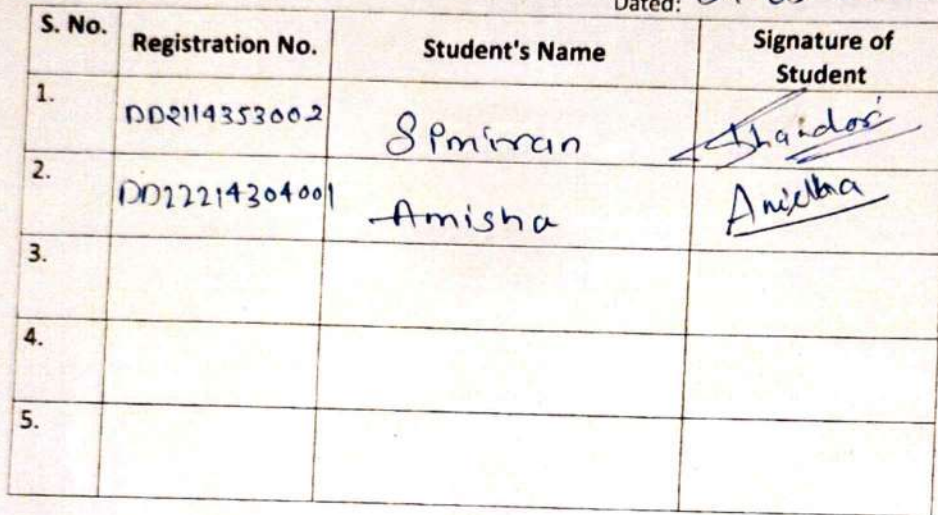 Dated:
S. No. Registration No. Student's Name Signature of Student
1. DD2114353002 Simran
2. DD22214304001 Amisha
3.
4.
5.